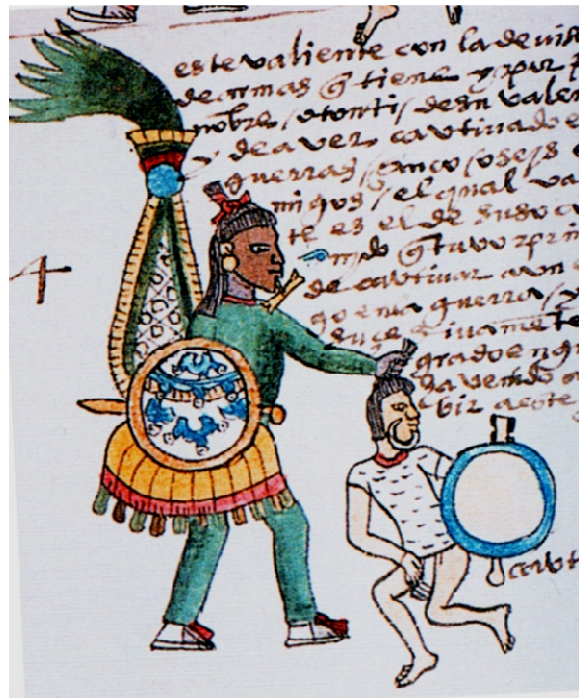 este valiente con la devisa
de armas q̃ tiene y por
nobre / otonti / de su valen
y de aver cavtivado e
guerras / çinco o seis e
migos / el qual va
te es el de suso
ndo q̃ tuvo prin
de cavtivar a un
go en la guerra /
suçesivamẽte
grado en
havendo
bir a este
cavt
4